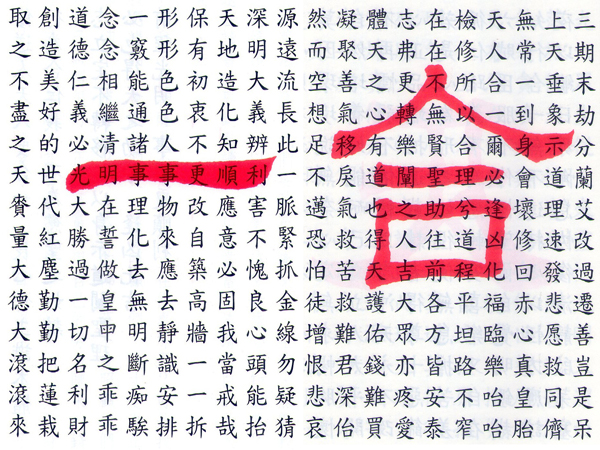 三期末劫分蘭艾改過遷善豈是呆
上天垂象示道理速發悲愿救同儕
無常一到身會壞修回赤心真皇胎
天人合一爾必逢凶化福臨樂咍咍
檢修所以合理兮道程平坦路不窄
在在不無賢聖助往前各方皆安泰
志弗更轉樂闡之人吉大眾亦疼愛
體天之心有道也得天護佑錢難買
凝聚善氣移戾氣救苦救難君深佁
然而空想足不邁恐怕徒增恨悲哀
源遠流長此一脈緊抓金線勿疑猜
深明大義辨利害不愧良心頭能抬
天地造化知順應意必固我當戒哉
保有初衷不更改自築高牆一一拆
形形色色人事物來應去靜識安排
一竅能通諸事理化去無明斷痴騃
念念相繼清明在誓做皇申之乖乖
道德仁義必光大勝過一切名利財
創造美好的世代紅塵勤勤把蓮栽
取之不盡之天賚量大德大滾滾來
合一